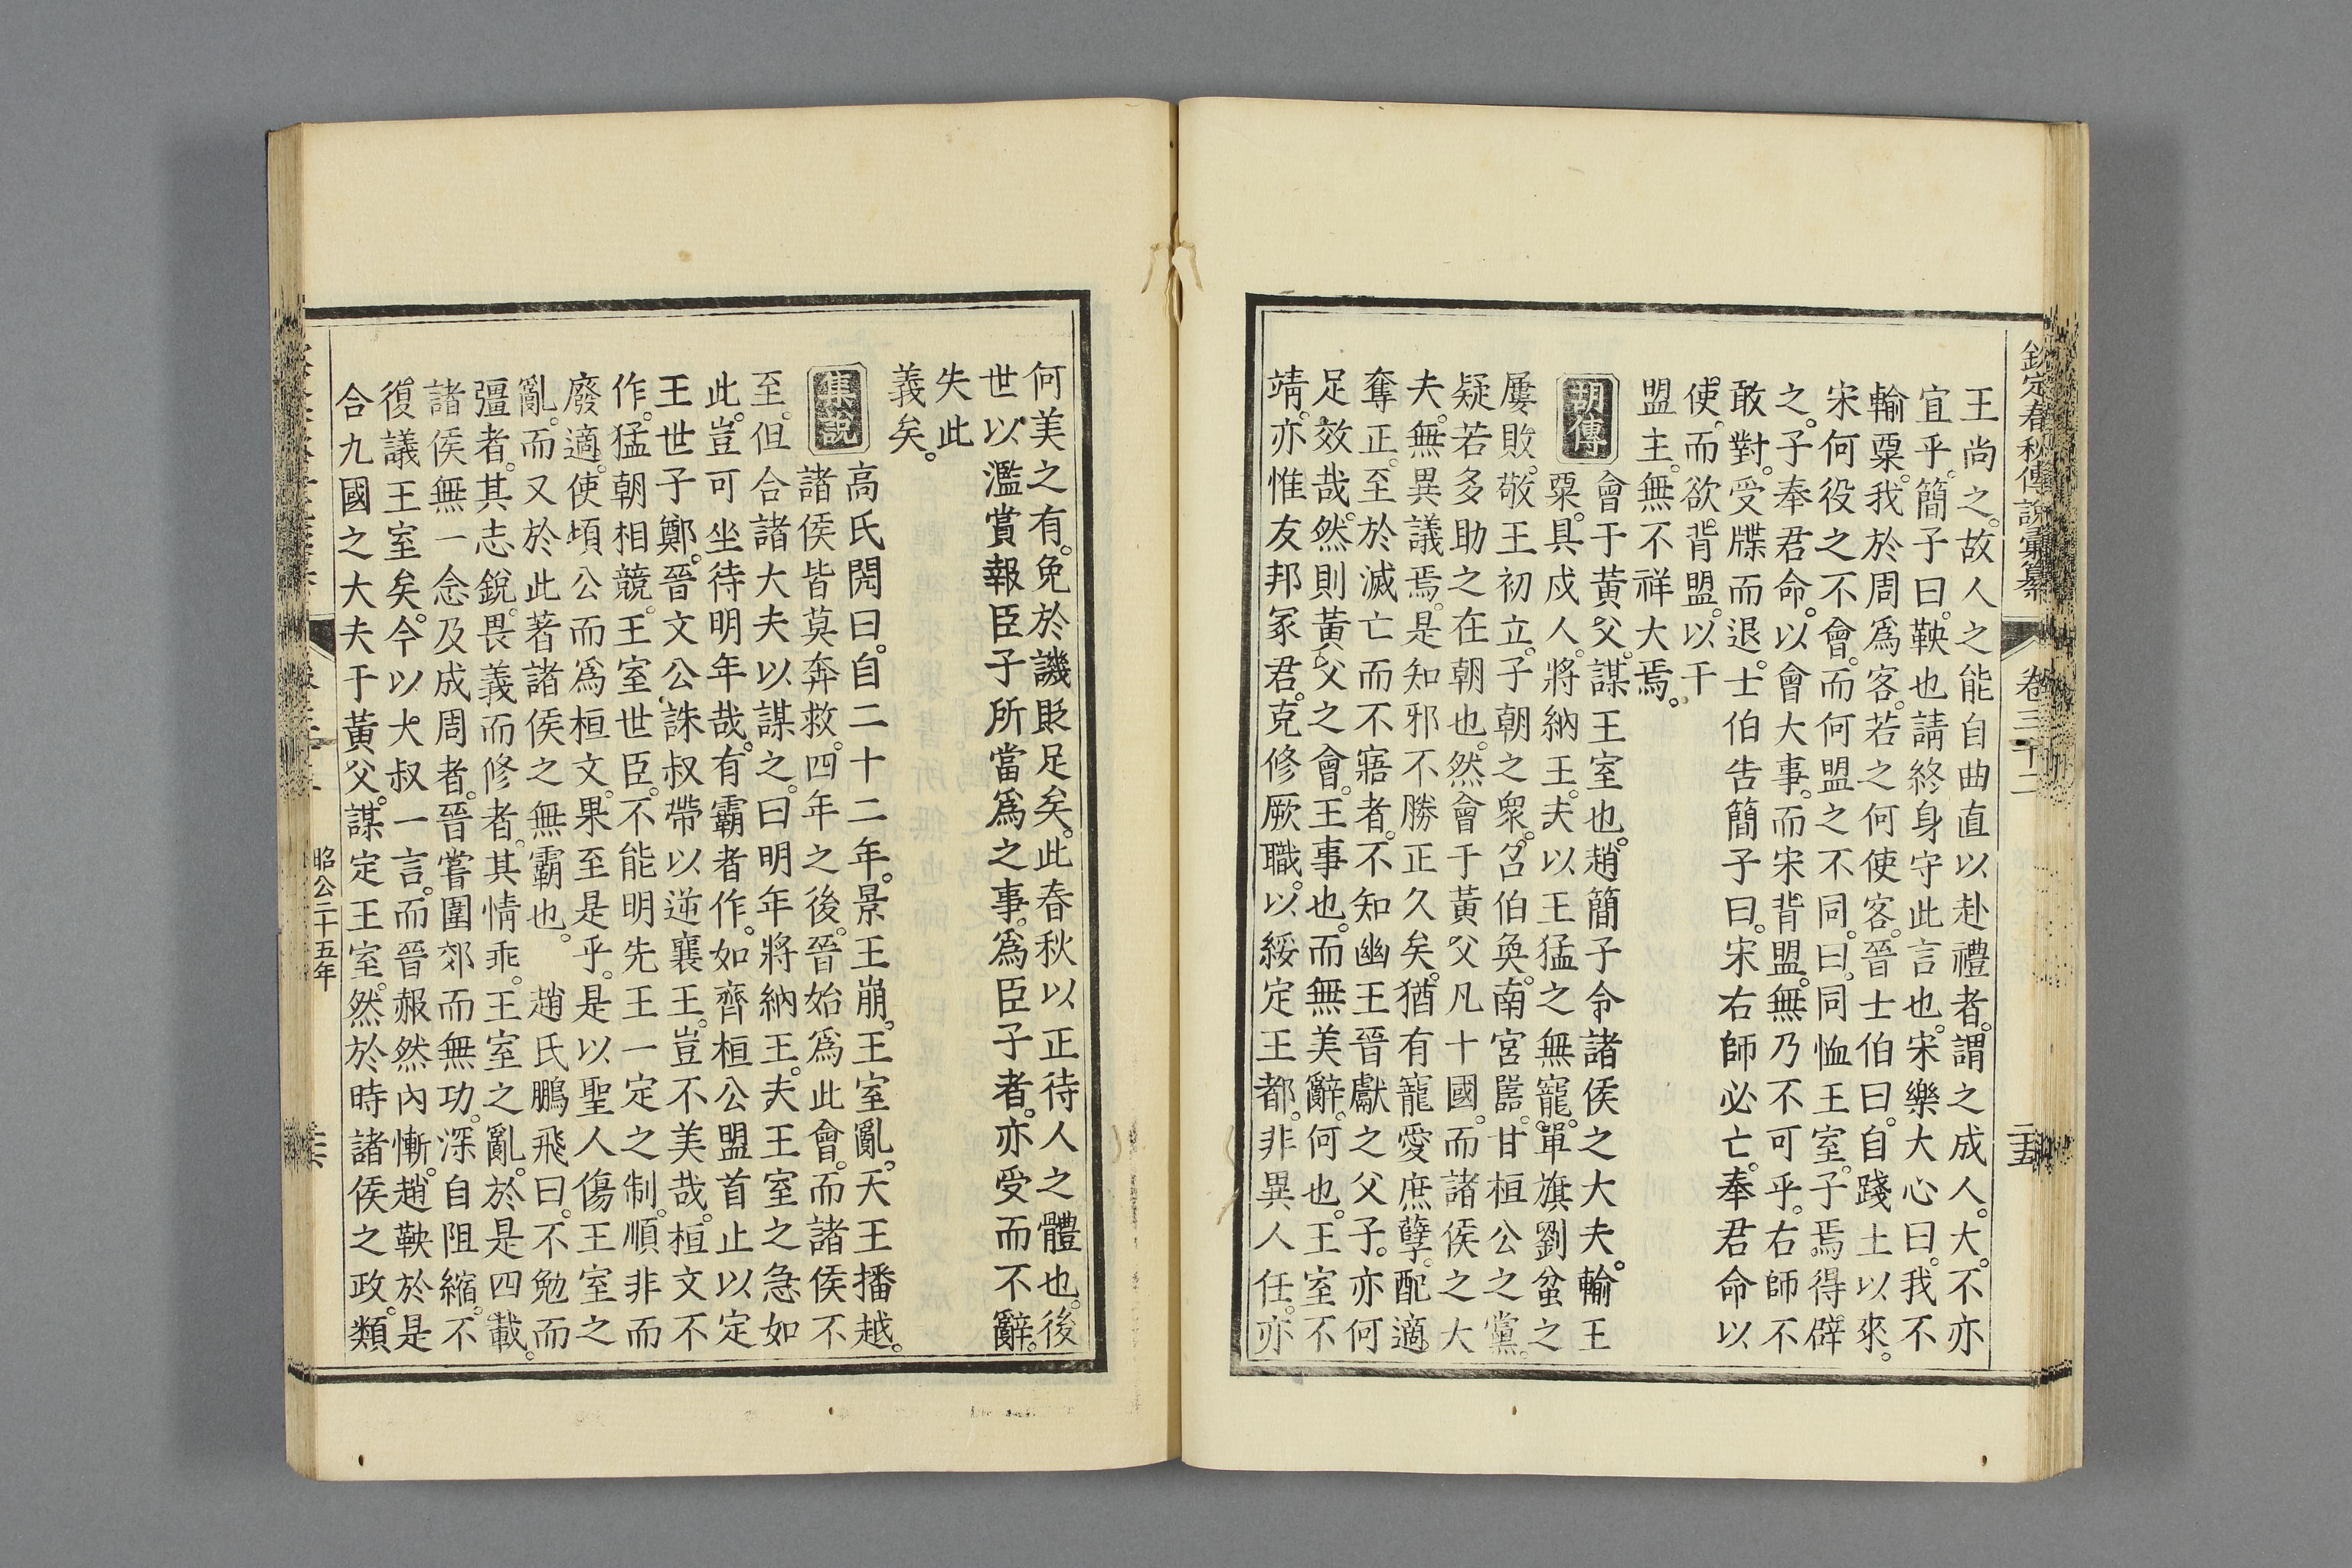 欽定春秋傳說彙纂 卷三十二 二十五
王尚之。故人之能自曲直以赴禮者。謂之成人。大。不亦
宜乎。簡子曰。鞅也請終身守此言也。宋樂大心曰。我不
輸粟。我於周爲客。若之何使客。晉士伯曰。自踐土以來。
宋何役之不會。而何盟之不同。曰。同恤王室。子焉得辟
之。子奉君命。以會大事。而宋背盟。無乃不可乎。右師不
敢對。受牒而退。士伯告簡子曰。宋右師必亡。奉君命以
使。而欲背盟。以干
盟主。無不祥大焉。
胡傳 會于黃父。謀王室也。趙簡子令諸侯之大夫。輸王
粟。具戍人。將納王。夫以王猛之無寵。單旗劉蚠之
屢敗。敬王初立。子朝之衆。召伯奐。南宮嚚。甘桓公之黨。
疑若多助之在朝也。然會于黃父凡十國。而諸侯之大
夫。無異議焉。是知邪不勝正久矣。猶有寵愛庶孽。配適
奪正。至於滅亡而不寤者。不知幽王晉獻之父子。亦何
足效哉。然則黃父之會。王事也。而無美辭。何也。王室不
靖。亦惟友邦冢君。克修厥職。以綏定王都。非異人任。亦
何美之有。免於譏貶足矣。此春秋以正待人之體也。後
世以濫賞報臣子所當爲之事。爲臣子者。亦受而不辭。
失此
義矣。
集說 高氏閌曰。自二十二年。景王崩。王室亂。天王播越。
諸侯皆莫奔救。四年之後。晉始爲此會。而諸侯不
至。但合諸大夫以謀之。曰明年將納王。夫王室之急如
此。豈可坐待明年哉。有霸者作。如齊桓公盟首止以定
王世子鄭。晉文公誅叔帶以逆襄王。豈不美哉。桓文不
作。猛朝相競。王室世臣。不能明先王一定之制。順非而
廢適。使頃公而爲桓文。果至是乎。是以聖人傷王室之
亂。而又於此著諸侯之無霸也。 趙氏鵬飛曰。不勉而
彊者。其志銳。畏義而修者。其情乖。王室之亂。於是四載。
諸侯無一念及成周者。晉嘗圍郊而無功。深自阻縮。不
復議王室矣。今以大叔一言。而晉赧然內慚。趙鞅於是
合九國之大夫于黃父。謀定王室。然於時諸侯之政。類
昭公二十五年